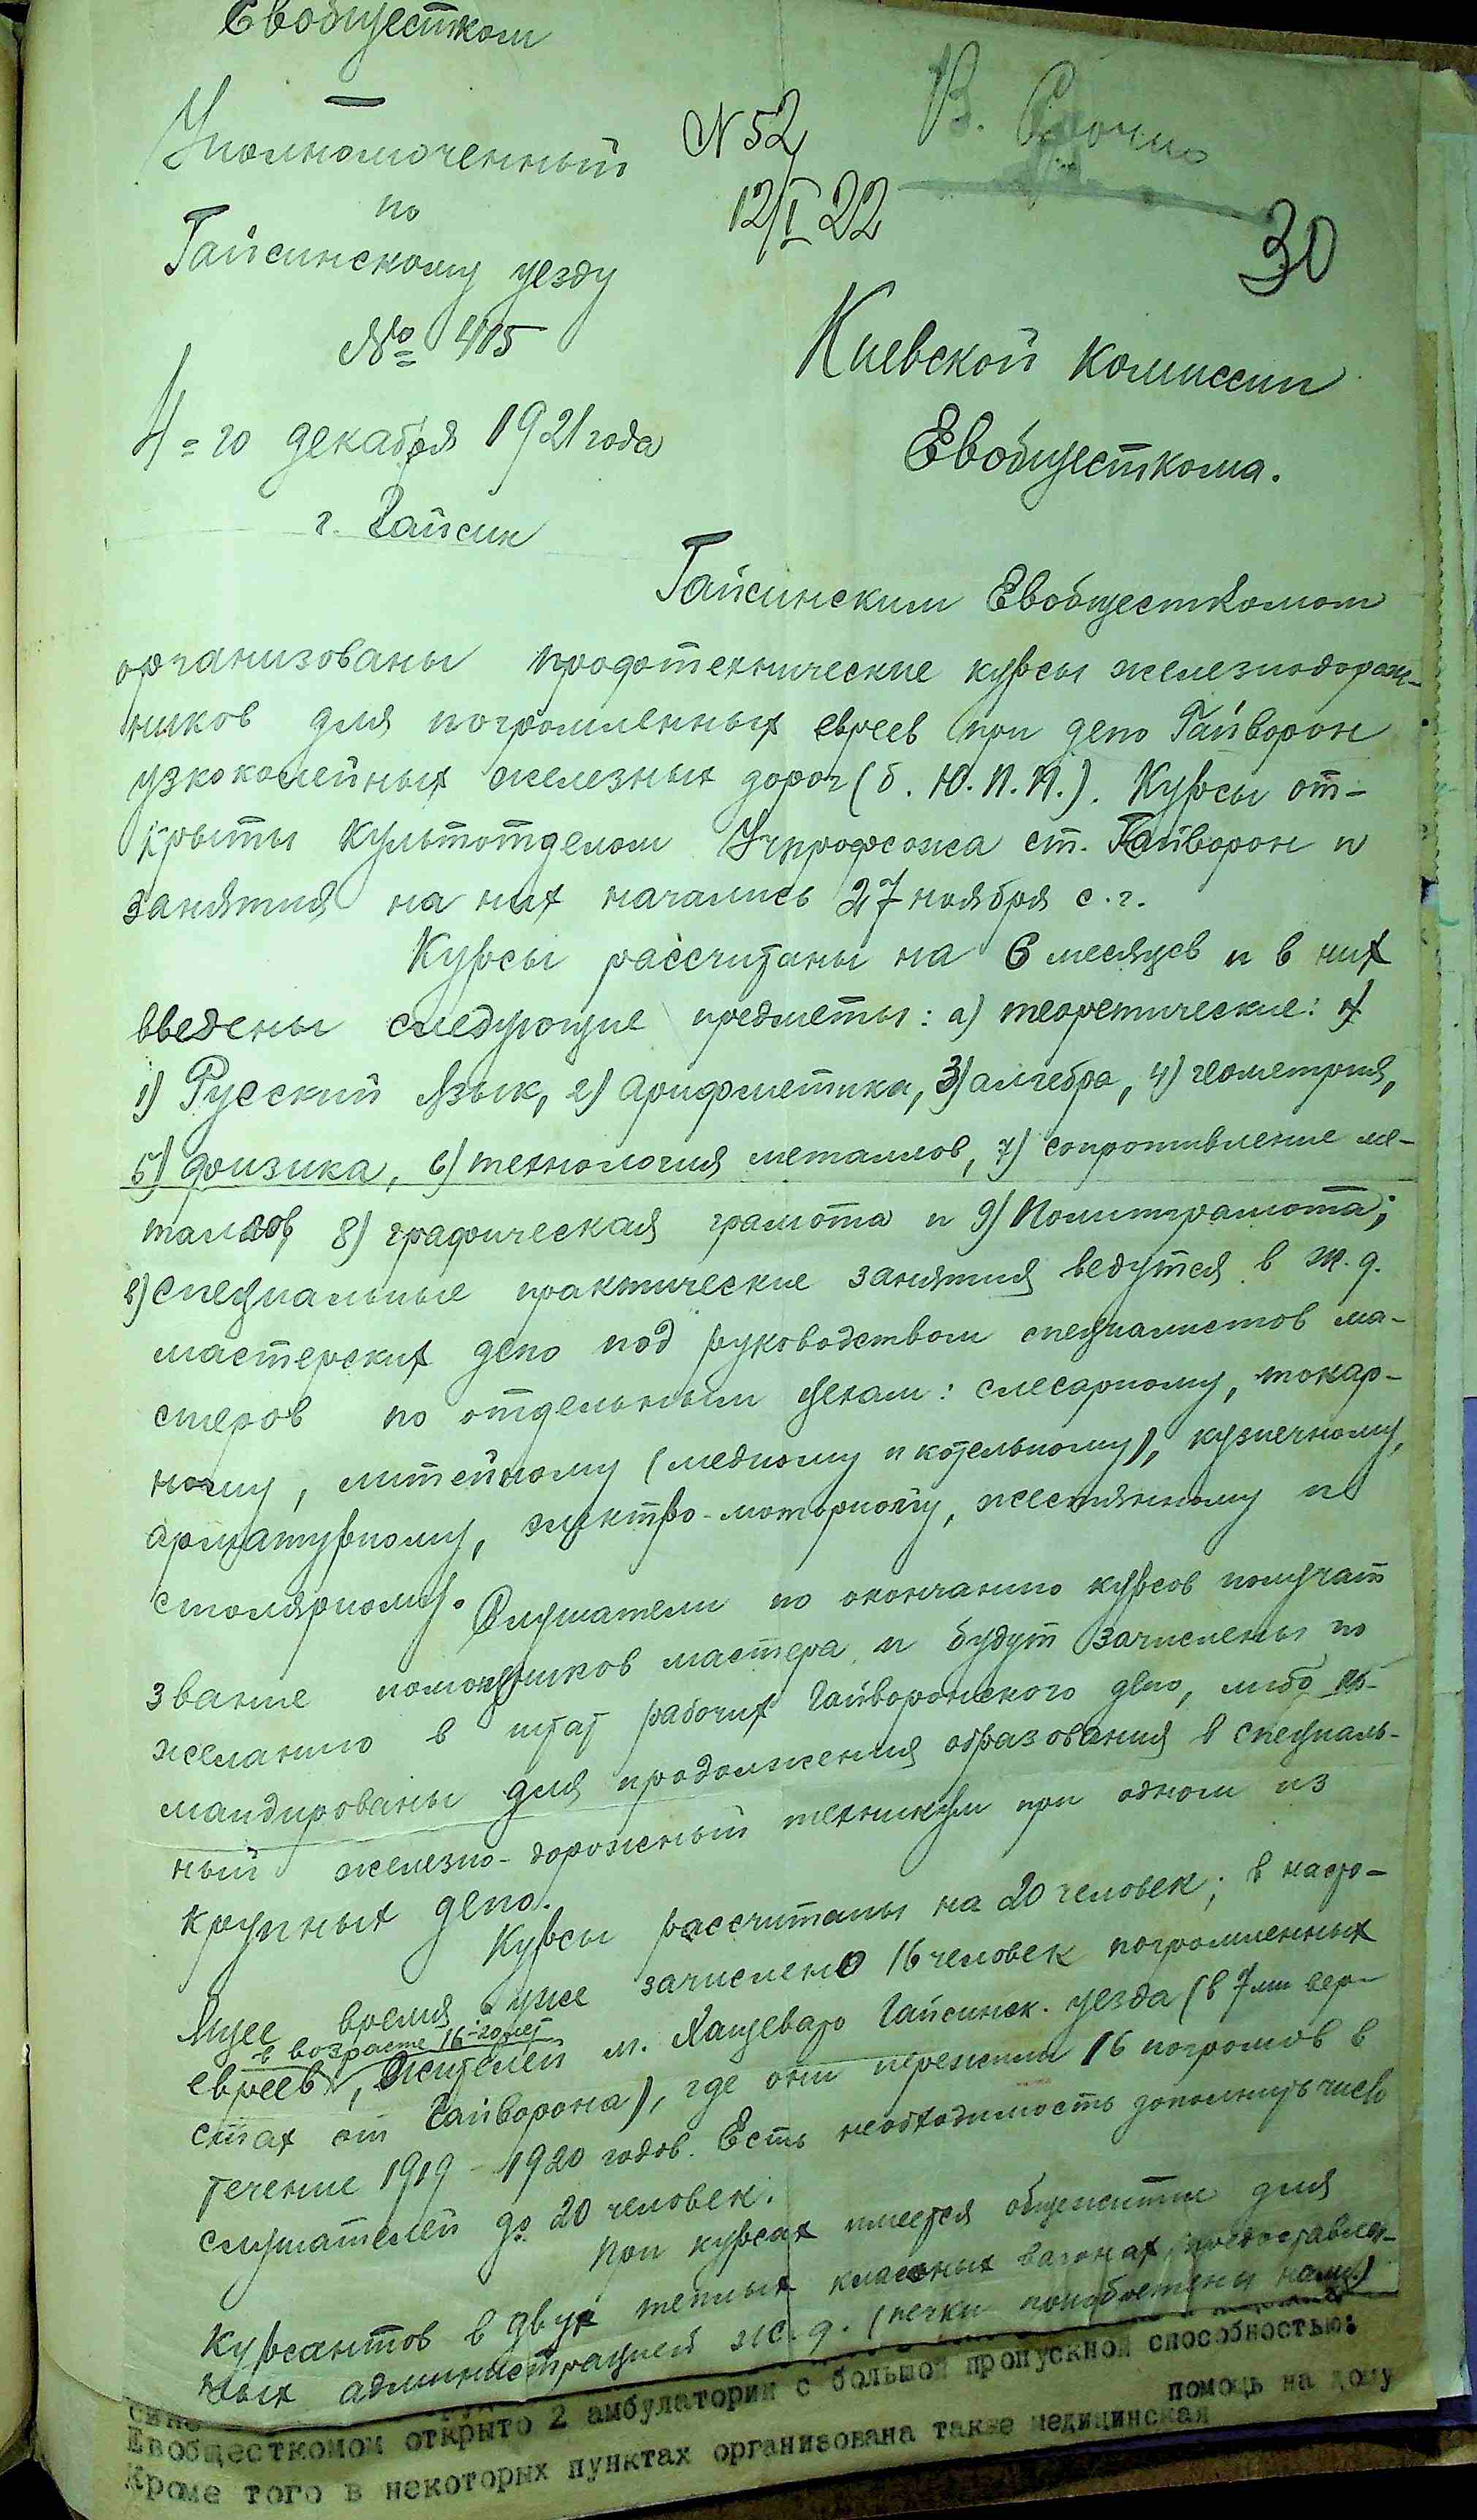 Евобщестком
Уполномоченный
по
Гайсинскому уезду
№ 415
4=го декабря 1921 года
г. Гайсин
N 52
12/I 22
В. Срочно
30
Киевской Комиссии
Евобщесткома.
Гайсинским Евобщесткомом
организованы профтехнические курсы железнодорож-
ников для погромленных евреев при депо Гайворон
узкоколейных железных дорог (б. Ю.П.П.). Курсы от-
крыты Культотделом Учпрофсожа ст. Гайворон и
занятия на них начались 27 ноября с.г.
Курсы рассчитаны на 6 месяцев и в них
введены следующие предметы: а) теоретические:
1) Русский Язык, 2) арифметика, 3) алгебра, 4) геометрия,
5) физика, 6) технология металлов, 7) сопротивление ме-
таллов, 8) графическая грамота и 9) Политграмота;
в) специальные практические занятия ведутся в ж.д.
мастерских депо под руководством специалистов ма-
стеров по отдельным цехам: слесарному, токар-
ному, литейному (медному и котельному), кузнечному,
арматурному, электро-моторному, жестяному и
столярному. Слушатели по окончанию курсов получат
звание помощников мастера и будут зачислены по
желанию в штат рабочих Гайворонского депо, либо ко-
мандированы для продолжения образования в специаль-
ный железно-дорожный техникум при одном из
крупных депо.
Курсы рассчитаны на 20 человек; в насто-
ящее время уже зачислено 16 человек погромленных
в возрасте 16-20 лет
евреев, жителей м. Хащевато Гайсинск. уезда (в 7ми вер-
стах от Гайворона), где они пережили 16 погромов в
течение 1919-1920 годов. Есть необходимость дополнить число
слушателей до 20 человек.
При курсах имеется общежитие для
курсантов в двух теплых классных вагонах предоставлен-
ных администрацией ж.д. (печки приобретены нами)
Евобщесткомом открыто 2 амбулатории с большой пропускной способностью:
Кроме того в некоторых пунктах организована также медицинская
помощь на дому